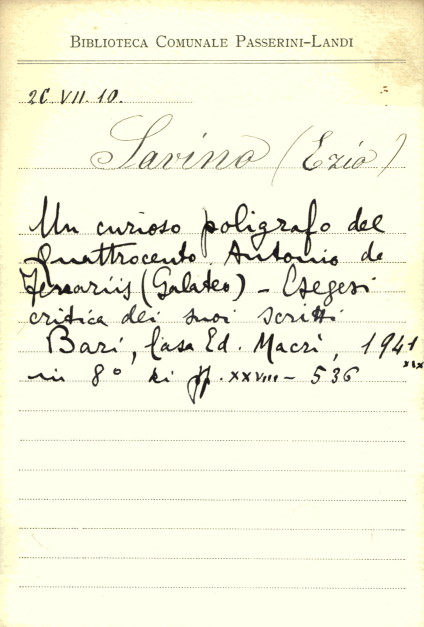 BIBLIOTECA COMUNALE PASSERINI-LANDI
2C VII. 10.
Savino (Ezio)
Un curioso poligrafo del
quattrocento. Antonio de
Ferrariis (Galateo) - Esegesi
critica dei suoi scritti
Bari, Casa Ed. Macrì, 1941
XIX
in 8° di pp. XXVIII - 536